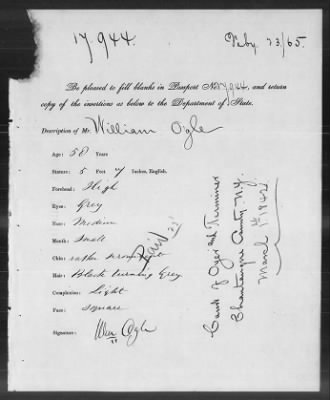 17,944.
Feby. 23/65.
Be pleased to fill blanks in Passport No. 17,944, and return
copy of the insertions as below to the Department of State.
Description of Mr. William Ogle
Age: 58 Years
Stature: 5 Feet 7 Inches, English.
Forehead: High
Eyes: Grey
Nose: Medium
Mouth: Small
Chin: rather
Hair: Black turning Grey
Complexion: Light
Face: Square
Signature: Wm Ogle
Paid
Court of Oyer and Terminer
Chautauque County N.Y.
March 1st 1842